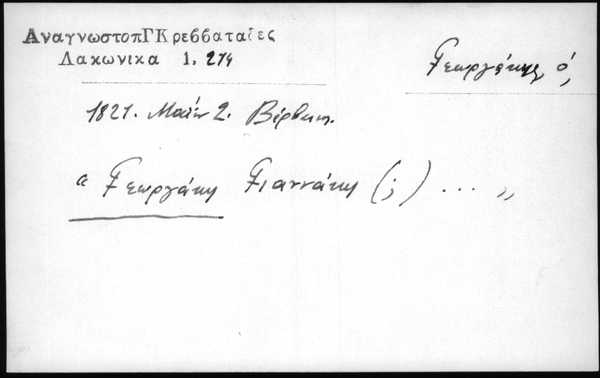 ΑναγνωστοπΓΚρεββαταδες
Λακωνικα 1, 274
Γεωργάκης, ὁ,
1821. Μαΐου 2. Βέρβενα.
"Γεωργάκη Γιαννάκη (;) ... "